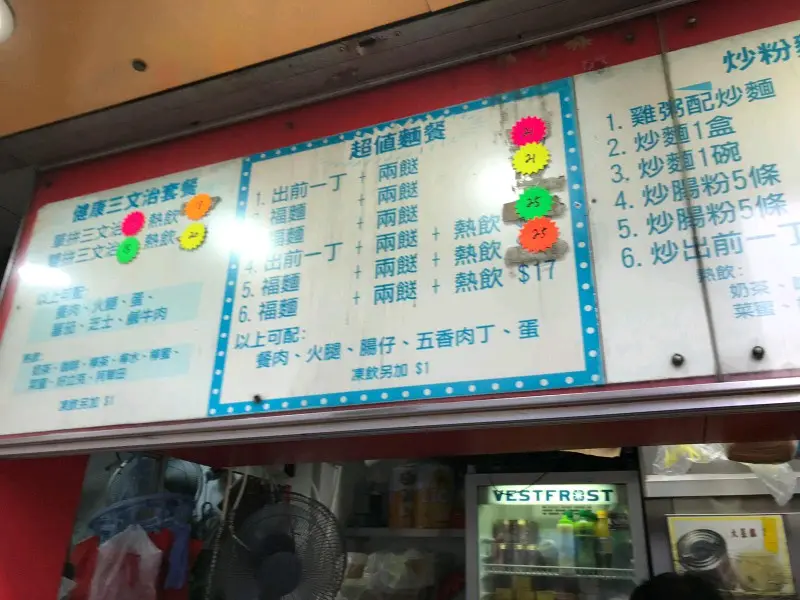 健康三文治套餐
單拼三文治 熱飲
雙拼三文治 熱飲 20
以上可配:
餐肉、火腿、蛋、
蕃茄、芝士、鹹牛肉
熱飲:
凍飲另加 $1
超值麵餐
1. 出前一丁 + 兩餸
福麵 + 兩餸 21
福麵 + 兩餸
4. 出前一丁 + 兩餸 + 熱飲 25
5. 福麵 + 兩餸 + 熱飲 25
6. 福麵 + 兩餸 + 熱飲 $17
以上可配:
餐肉、火腿、腸仔、五香肉丁、蛋
凍飲另加 $1
炒粉麵
1. 雞粥配炒麵
2. 炒麵1盒
3. 炒麵1碗
4. 炒腸粉5條
5. 炒腸粉5條
6. 炒出前一丁
熱飲:
奶茶、
菜蜜、
VESTFROST